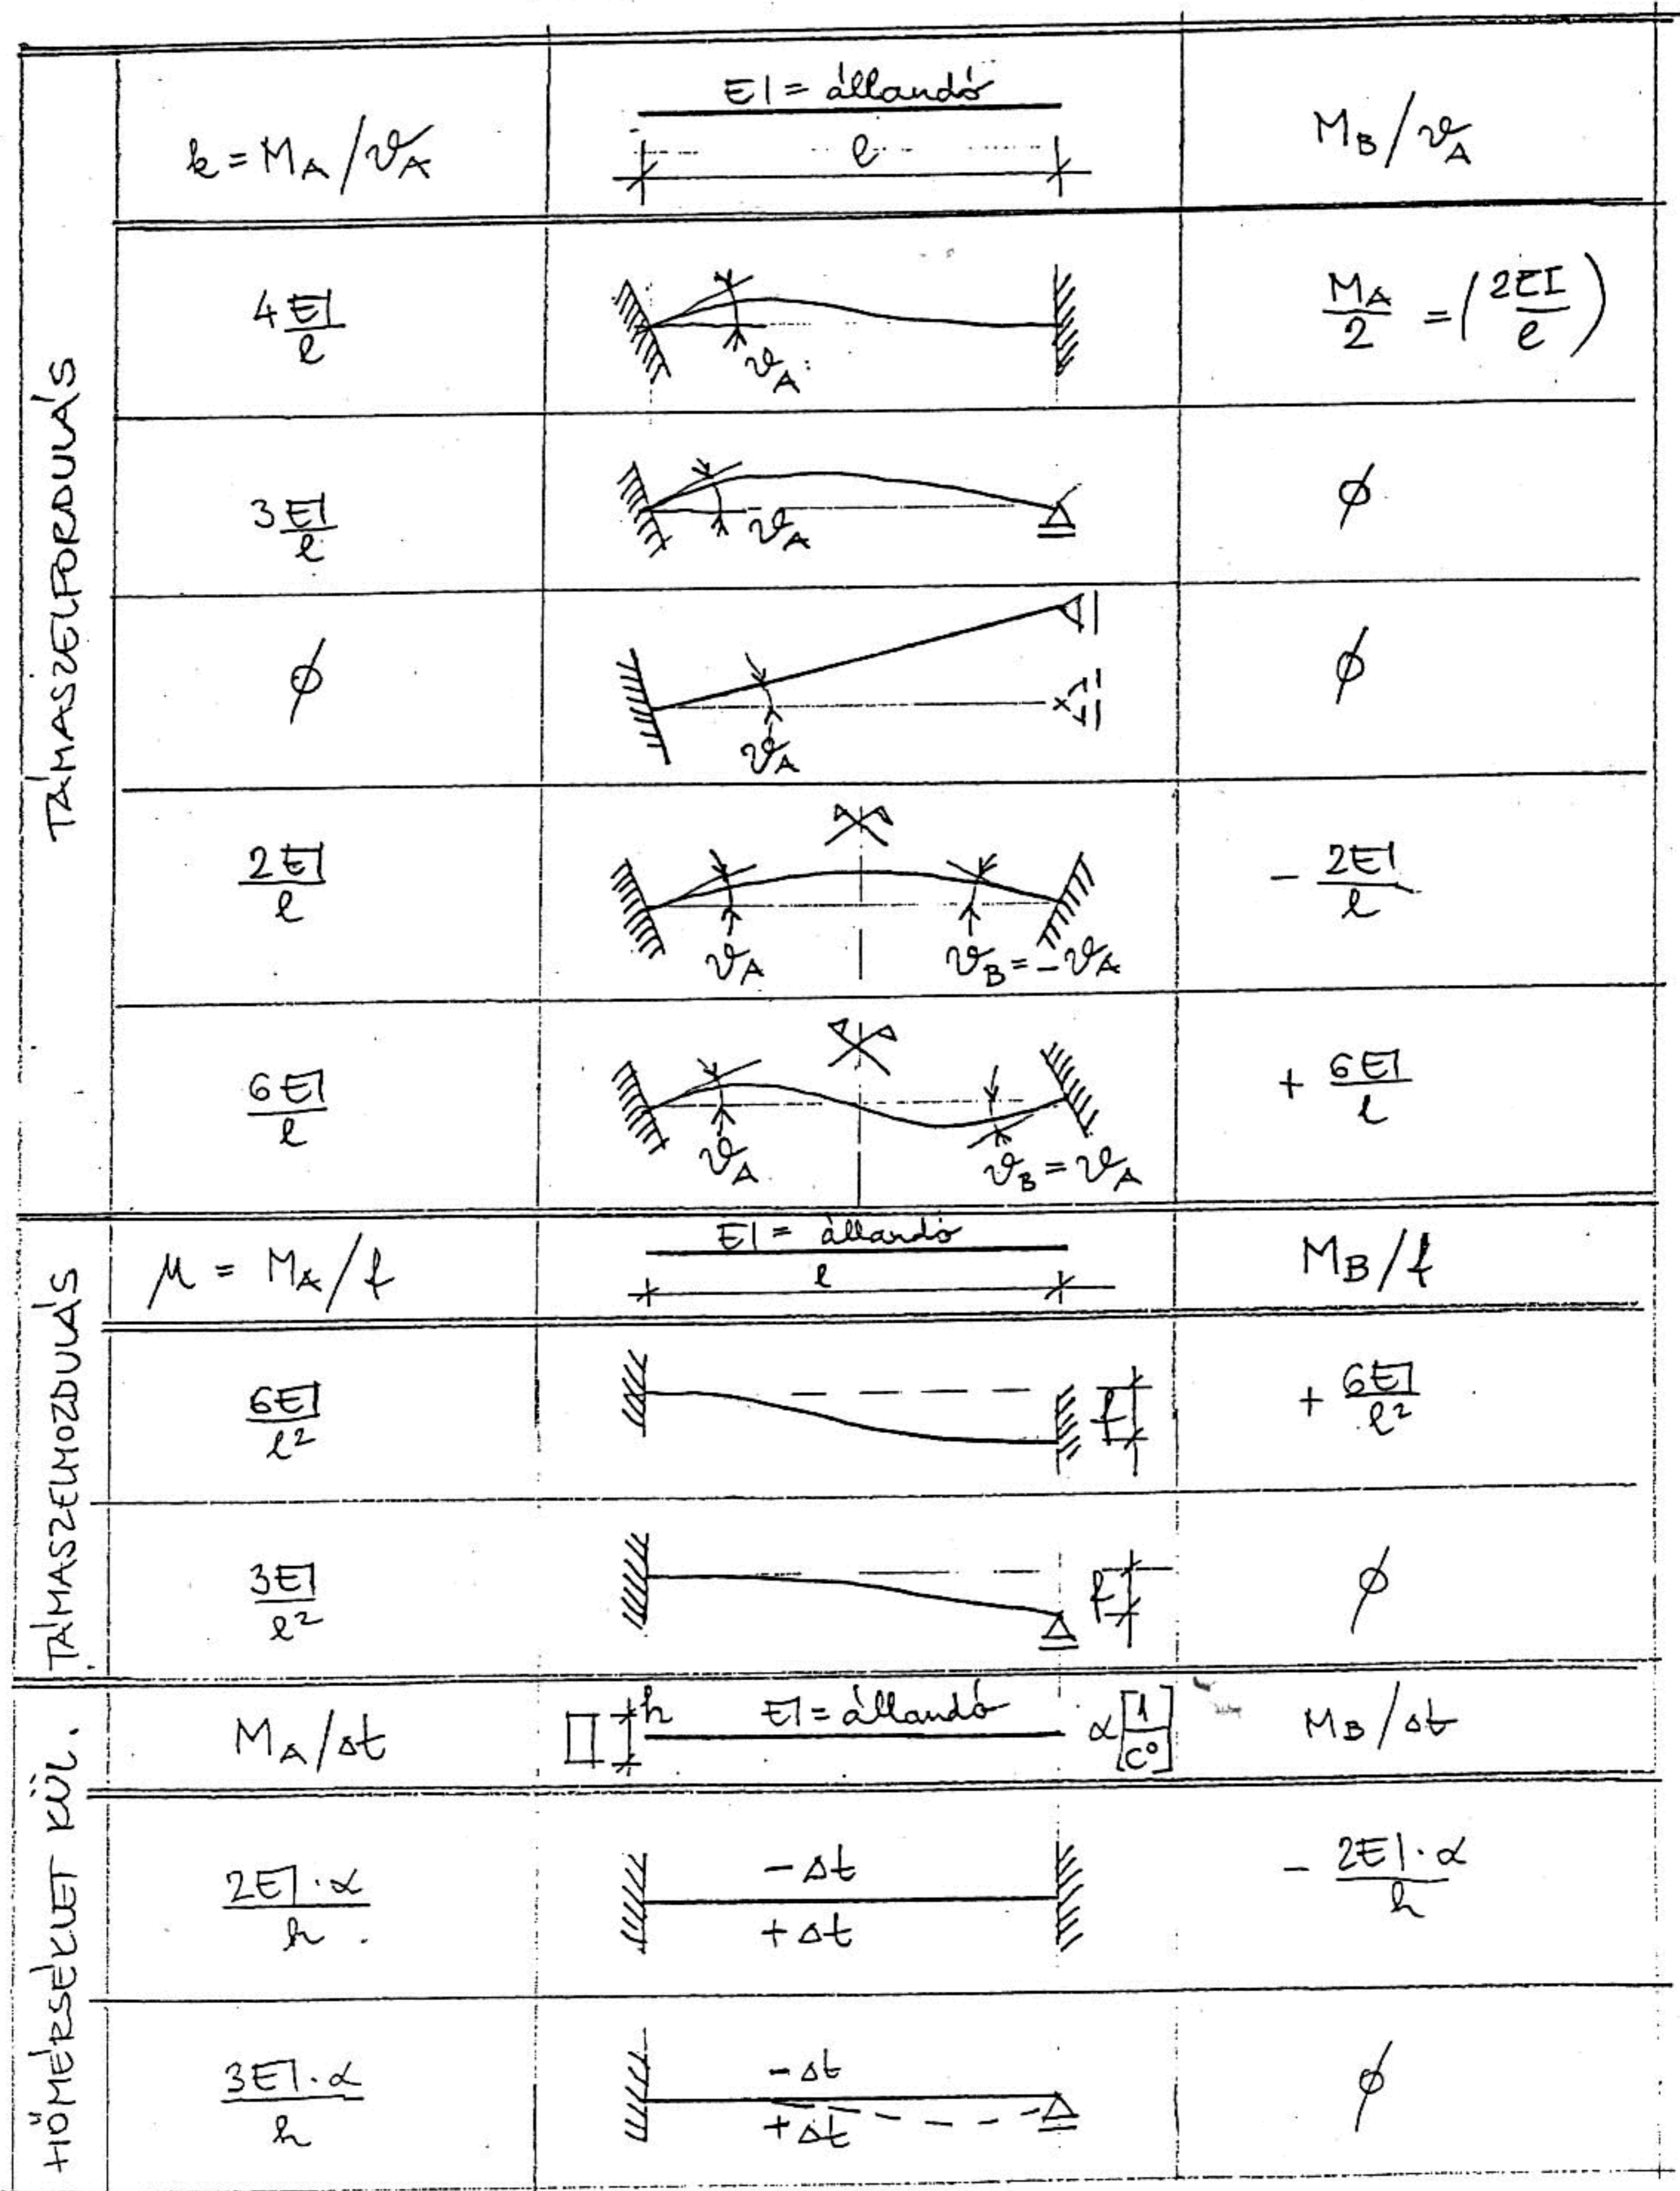 TÁMASZELFORDULÁS
k = M_A / ϑ_A
EI = állandó
l
M_B / ϑ_A
4EI/l
ϑ_A
M_A/2 = (2EI/l)
3EI/l
ϑ_A
ϕ
ϕ
ϑ_A
ϕ
2EI/l
ϑ_A
ϑ_B = -ϑ_A
- 2EI/l
6EI/l
ϑ_A
ϑ_B = ϑ_A
+ 6EI/l
TÁMASZELMOZDULÁS
μ = M_A / f
EI = állandó
l
M_B / f
6EI/l²
f
+ 6EI/l²
3EI/l²
f
ϕ
HŐMÉRSÉKLET KÜL.
M_A / Δt
h
EI = állandó
α [1/C°]
M_B / Δt
2EI·α/h
-Δt
+Δt
- 2EI·α/h
3EI·α/h
-Δt
+Δt
ϕ